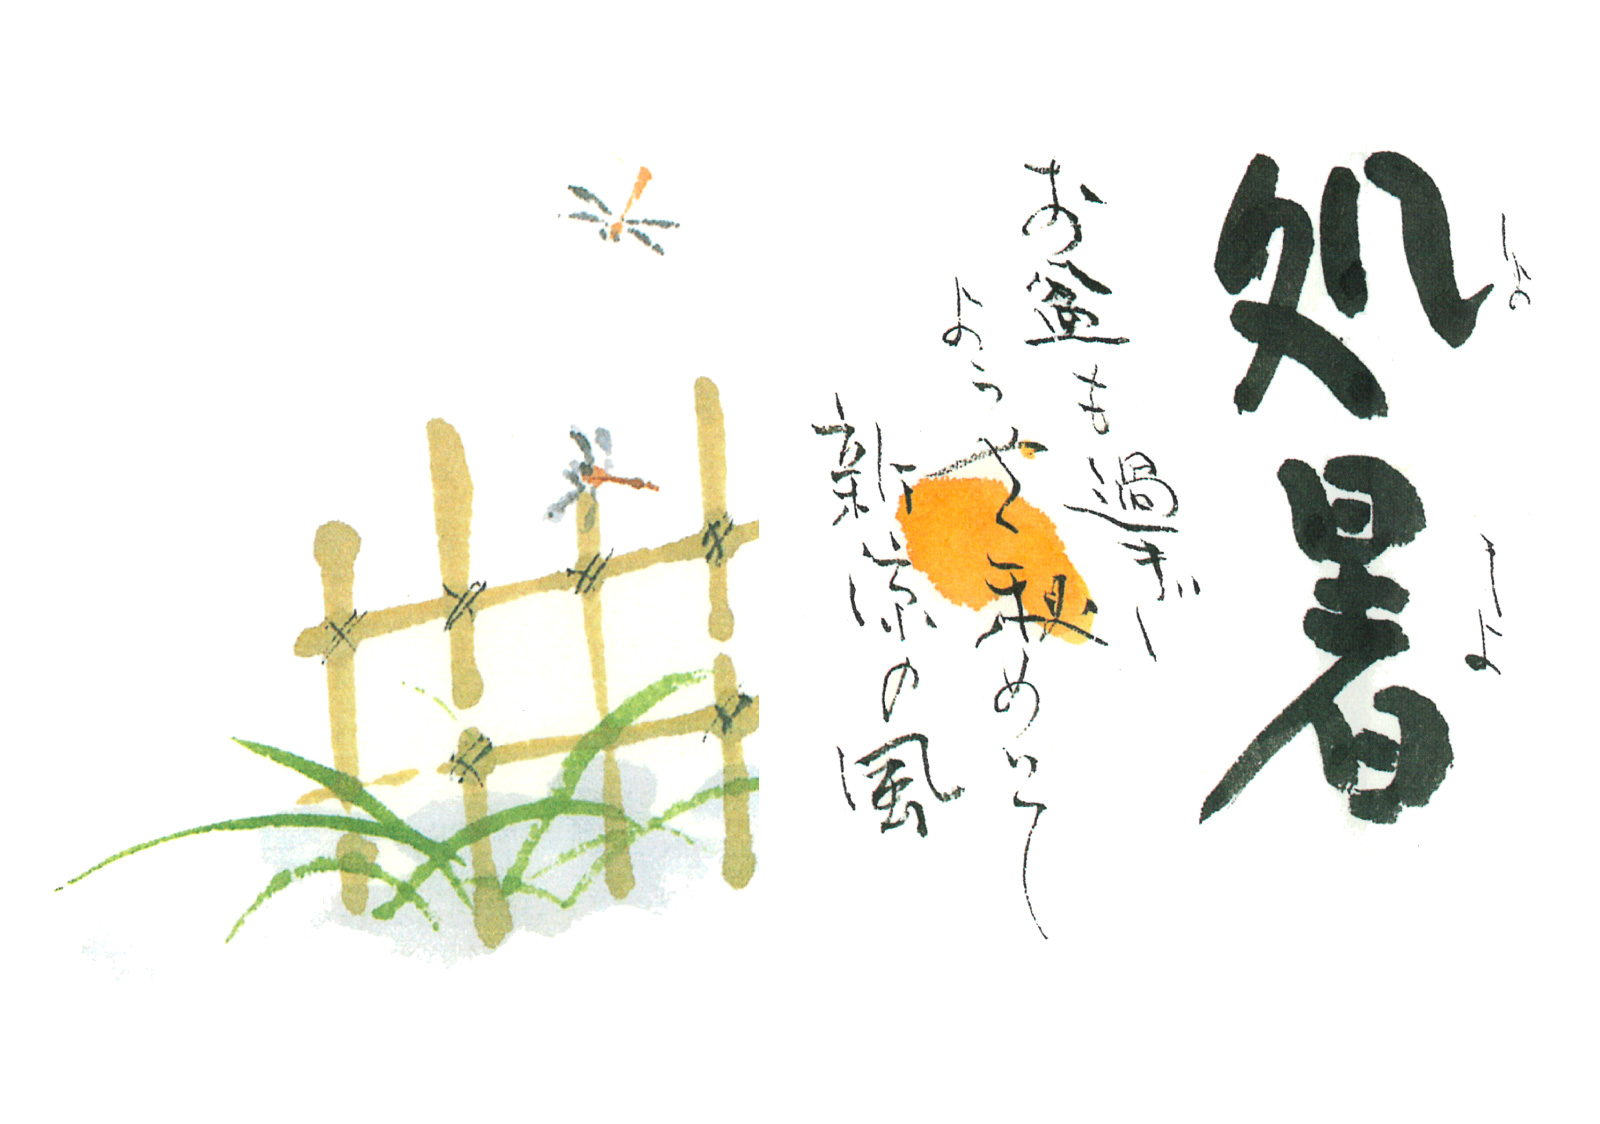 処暑
しょ
しょ
お盆も過ぎ
ようやく秋めいて
新涼の風